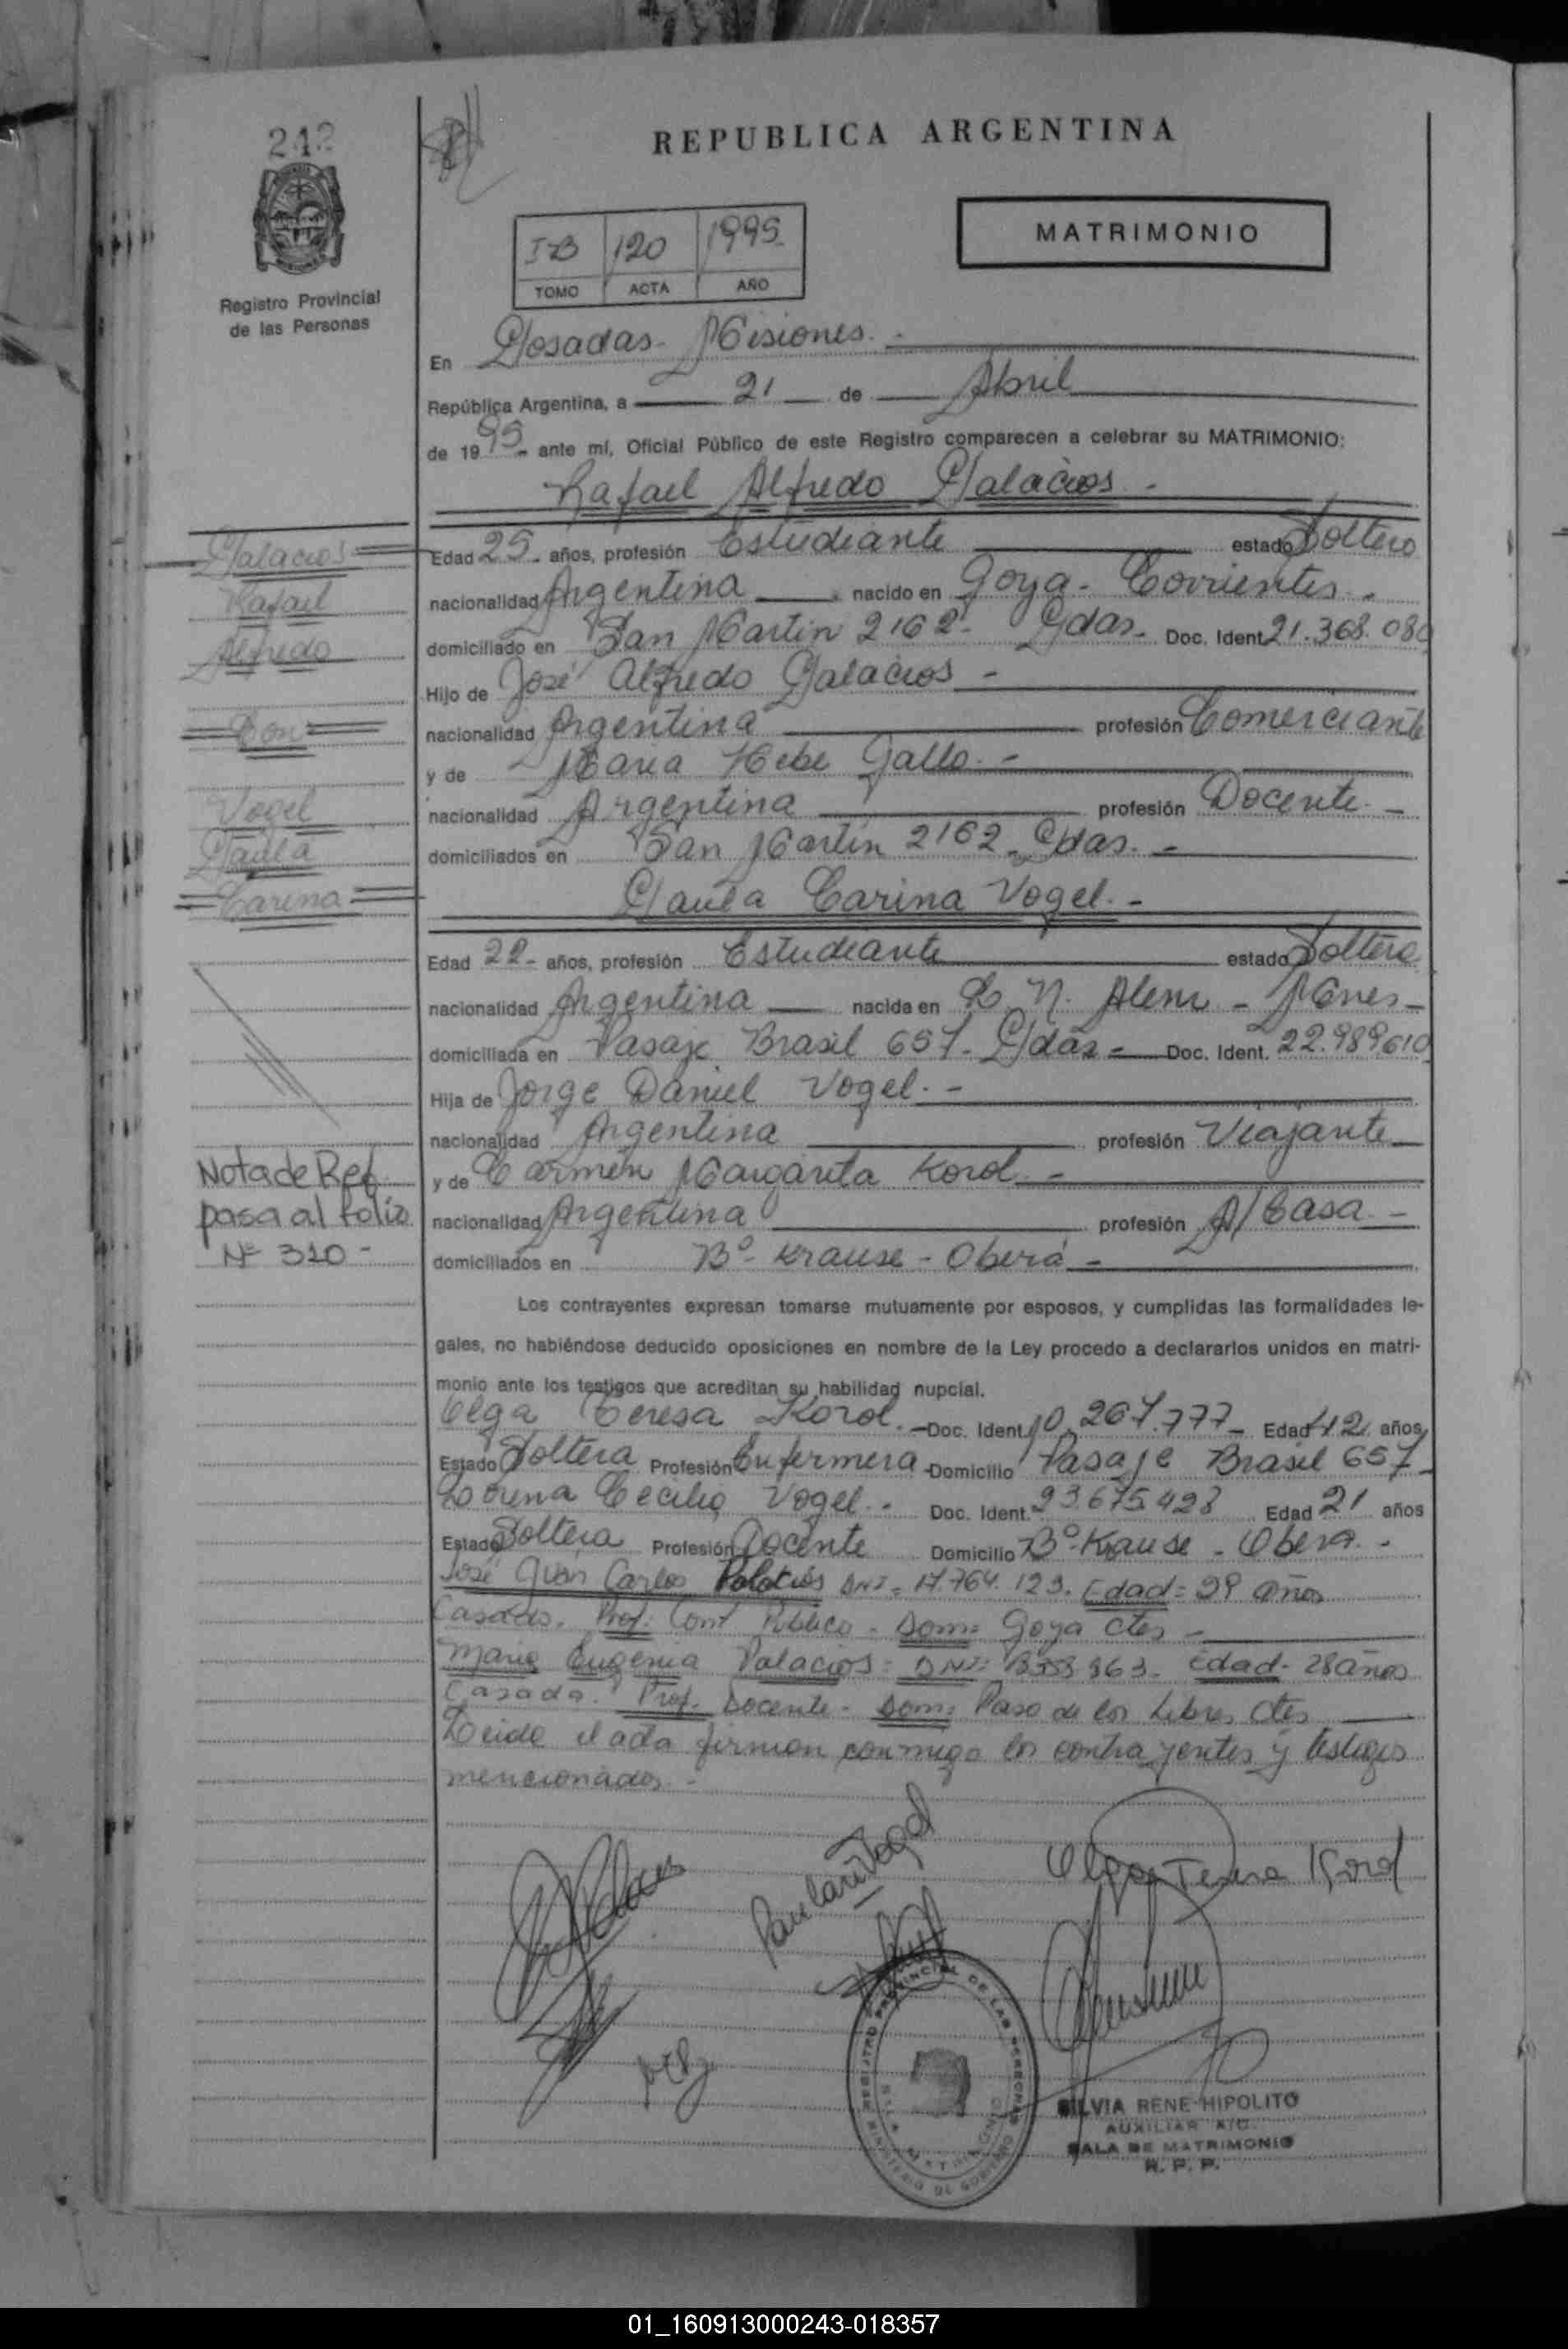 242
REPUBLICA ARGENTINA
MATRIMONIO
120 1995
TOMO ACTA AÑO
Registro Provincial
de las Personas
En Posadas - Misiones. -
República Argentina, a 21 de Abril
de 1995 - ante mí, Oficial Público de este Registro comparecen a celebrar su MATRIMONIO:
Rafael Alfredo Palacios -
Palacios
Rafael
Alfredo
Con
Vogel
Paula
Carina
Edad 25 - años, profesión Estudiante estado Soltero
nacionalidad Argentina nacido en Goya - Corrientes -
domiciliado en San Martin 2162 - Pdas - Doc. Ident. 21.368.080
Hijo de José Alfredo Palacios -
nacionalidad Argentina profesión Comerciante
y de Maria Hebe Gallo. -
nacionalidad Argentina profesión Docente -
domiciliados en San Martin 2162 - Pdas. -
Paula Carina Vogel. -
Edad 22 - años, profesión Estudiante estado Soltera
nacionalidad Argentina nacida en L. N. Alem - Mnes -
domiciliada en Pasaje Brasil 657 - Pdas - Doc. Ident. 22.989.610
Hija de Jorge Daniel Vogel. -
nacionalidad Argentina profesión Viajante
y de Carmen Margarita Korol. -
nacionalidad Argentina profesión A/Casa -
domiciliados en Bº - Krause - Oberá -
Nota de Ref.
pasa al folio
Nº 310 -
Los contrayentes expresan tomarse mutuamente por esposos, y cumplidas las formalidades le-
gales, no habiéndose deducido oposiciones en nombre de la Ley procedo a declararlos unidos en matri-
monio ante los testigos que acreditan su habilidad nupcial.
Olga Teresa Korol. - Doc. Ident. 10.267.777 - Edad 42 años
Estado Soltera Profesión Enfermera Domicilio Pasaje Brasil 657 -
Lorena Cecilia Vogel. - Doc. Ident. 23.675.423 Edad 21 años
Estado Soltera Profesión Docente Domicilio Bº - Krause - Oberá. -
José Juan Carlos Palacios DNI = 17.764.123. Edad = 29 años
Casado. Prof. Cont Publico - Dom: Goya Ctes -
Maria Eugenia Palacios: DNI: Edad - 28 años
Casada. Prof. Docente - Dom: Paso de los Libres Ctes
Leida el acta firman conmigo los contrayentes y testigos
mencionados -
Paula Vogel
Olga Teresa Korol
REGISTRO PROVINCIAL DE LAS PERSONAS
MINISTERIO DE GOBIERNO
SALA MATRIMONIO
SILVIA RENE HIPOLITO
AUXILIAR A/C.
SALA DE MATRIMONIO
R. P. P.
01_160913000243-018357